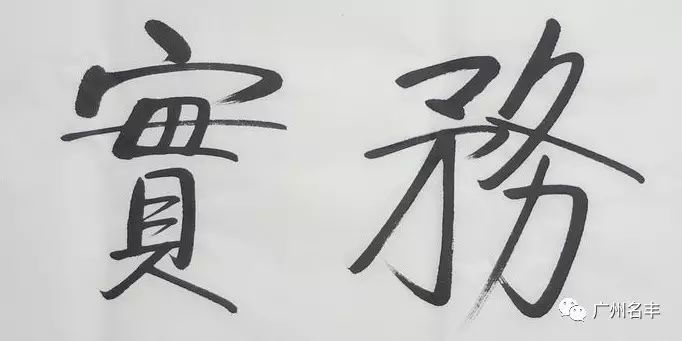 務實
广州名丰